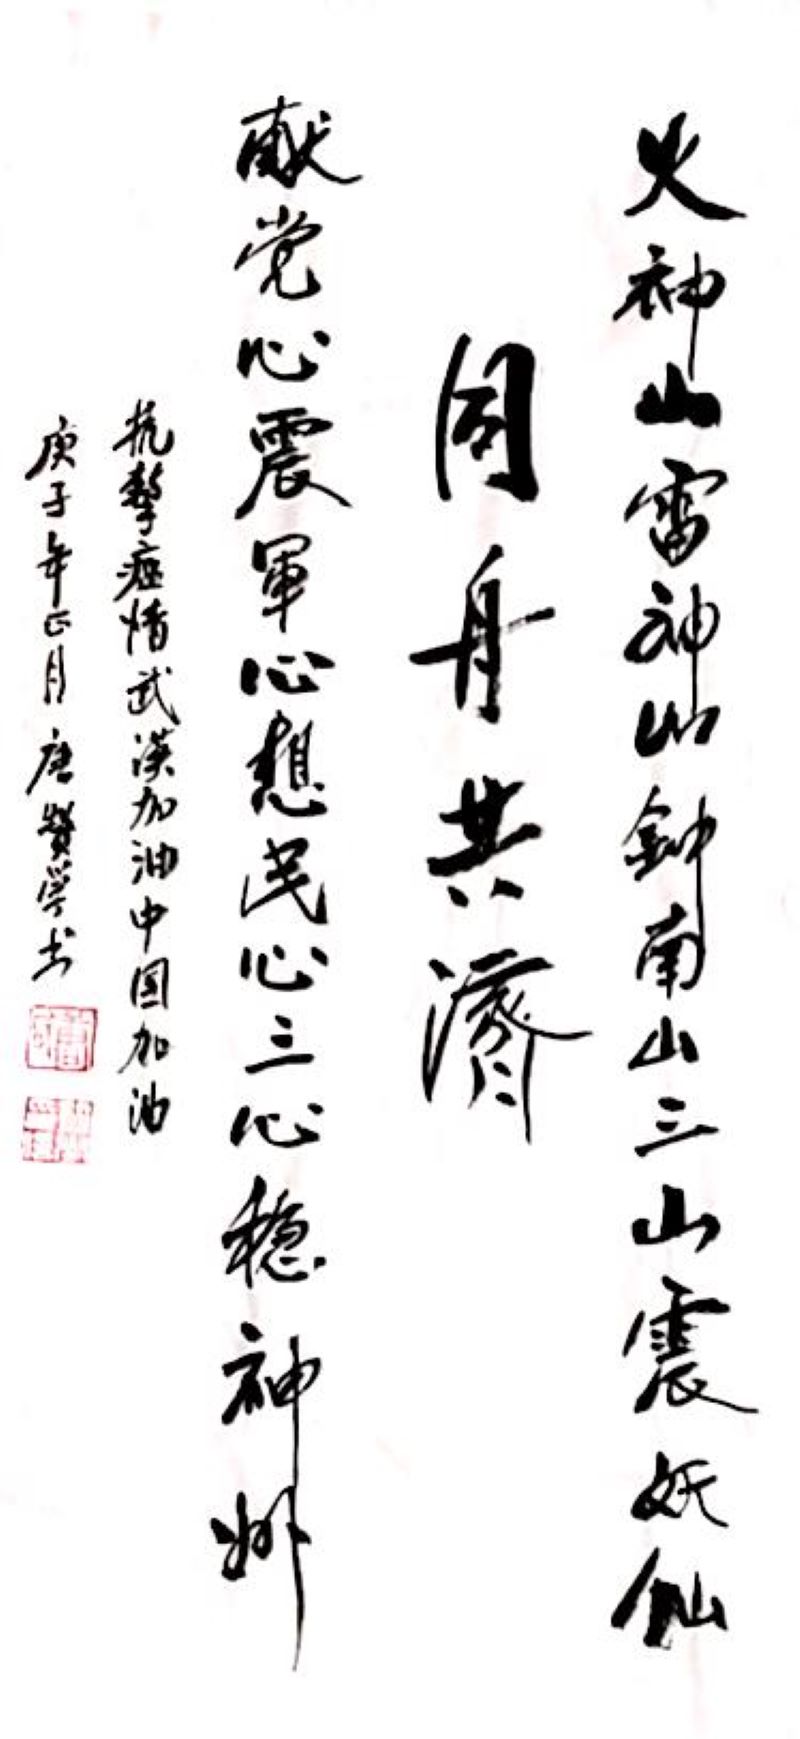 火神山雷神山鈡南山三山震妖仙
同舟共濟
献党心震軍心想民心三心稳神州
抗擊疫情武漢加油中国加油
庚子年正月唐贊学书